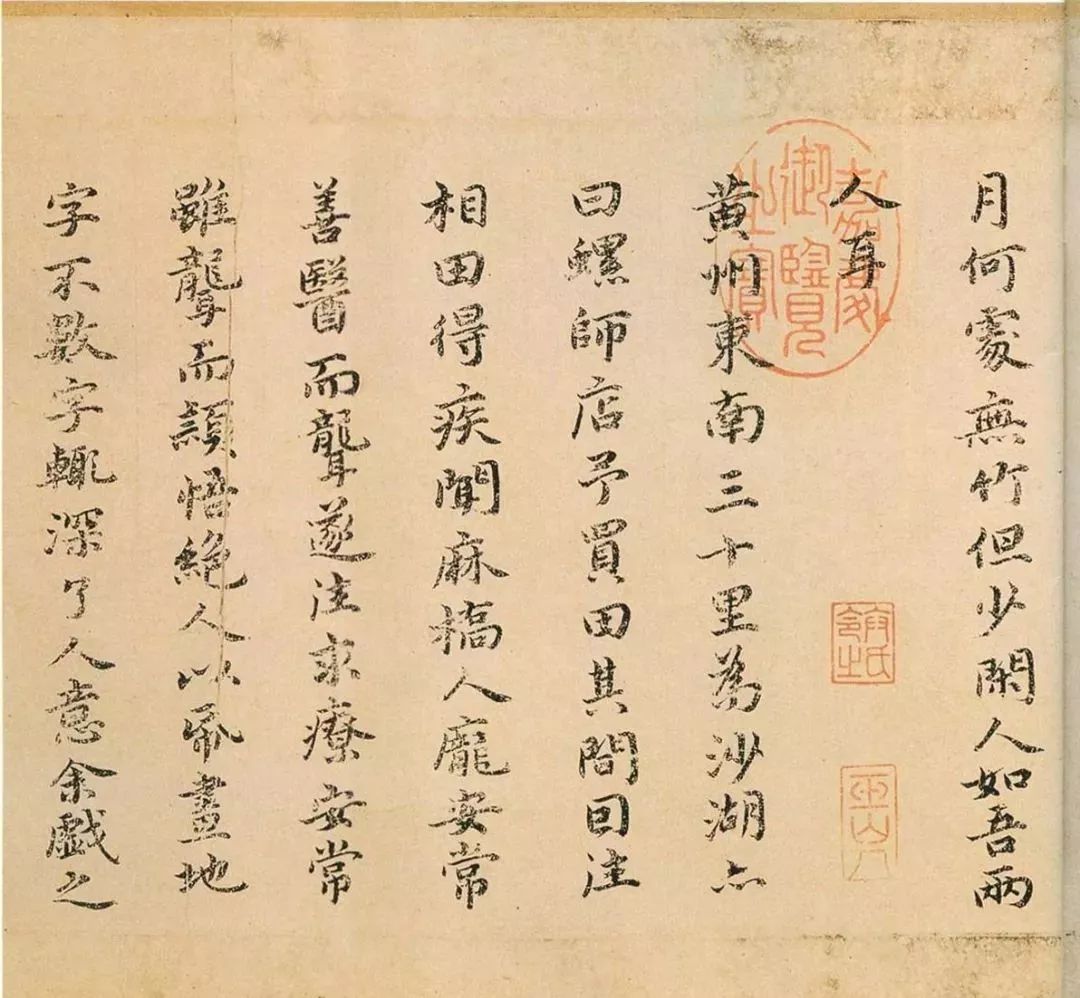 月何處無竹但少閑人如吾兩
人耳
黄州東南三十里為沙湖亦
曰螺師店予買田其間囙往
相田得疾聞麻橋人龐安常
善醫而聾遂往求療安常
雖聾而頴悟絶人以帋畫地
字不數字輒深了人意余戲之
嘉慶御覽之寶